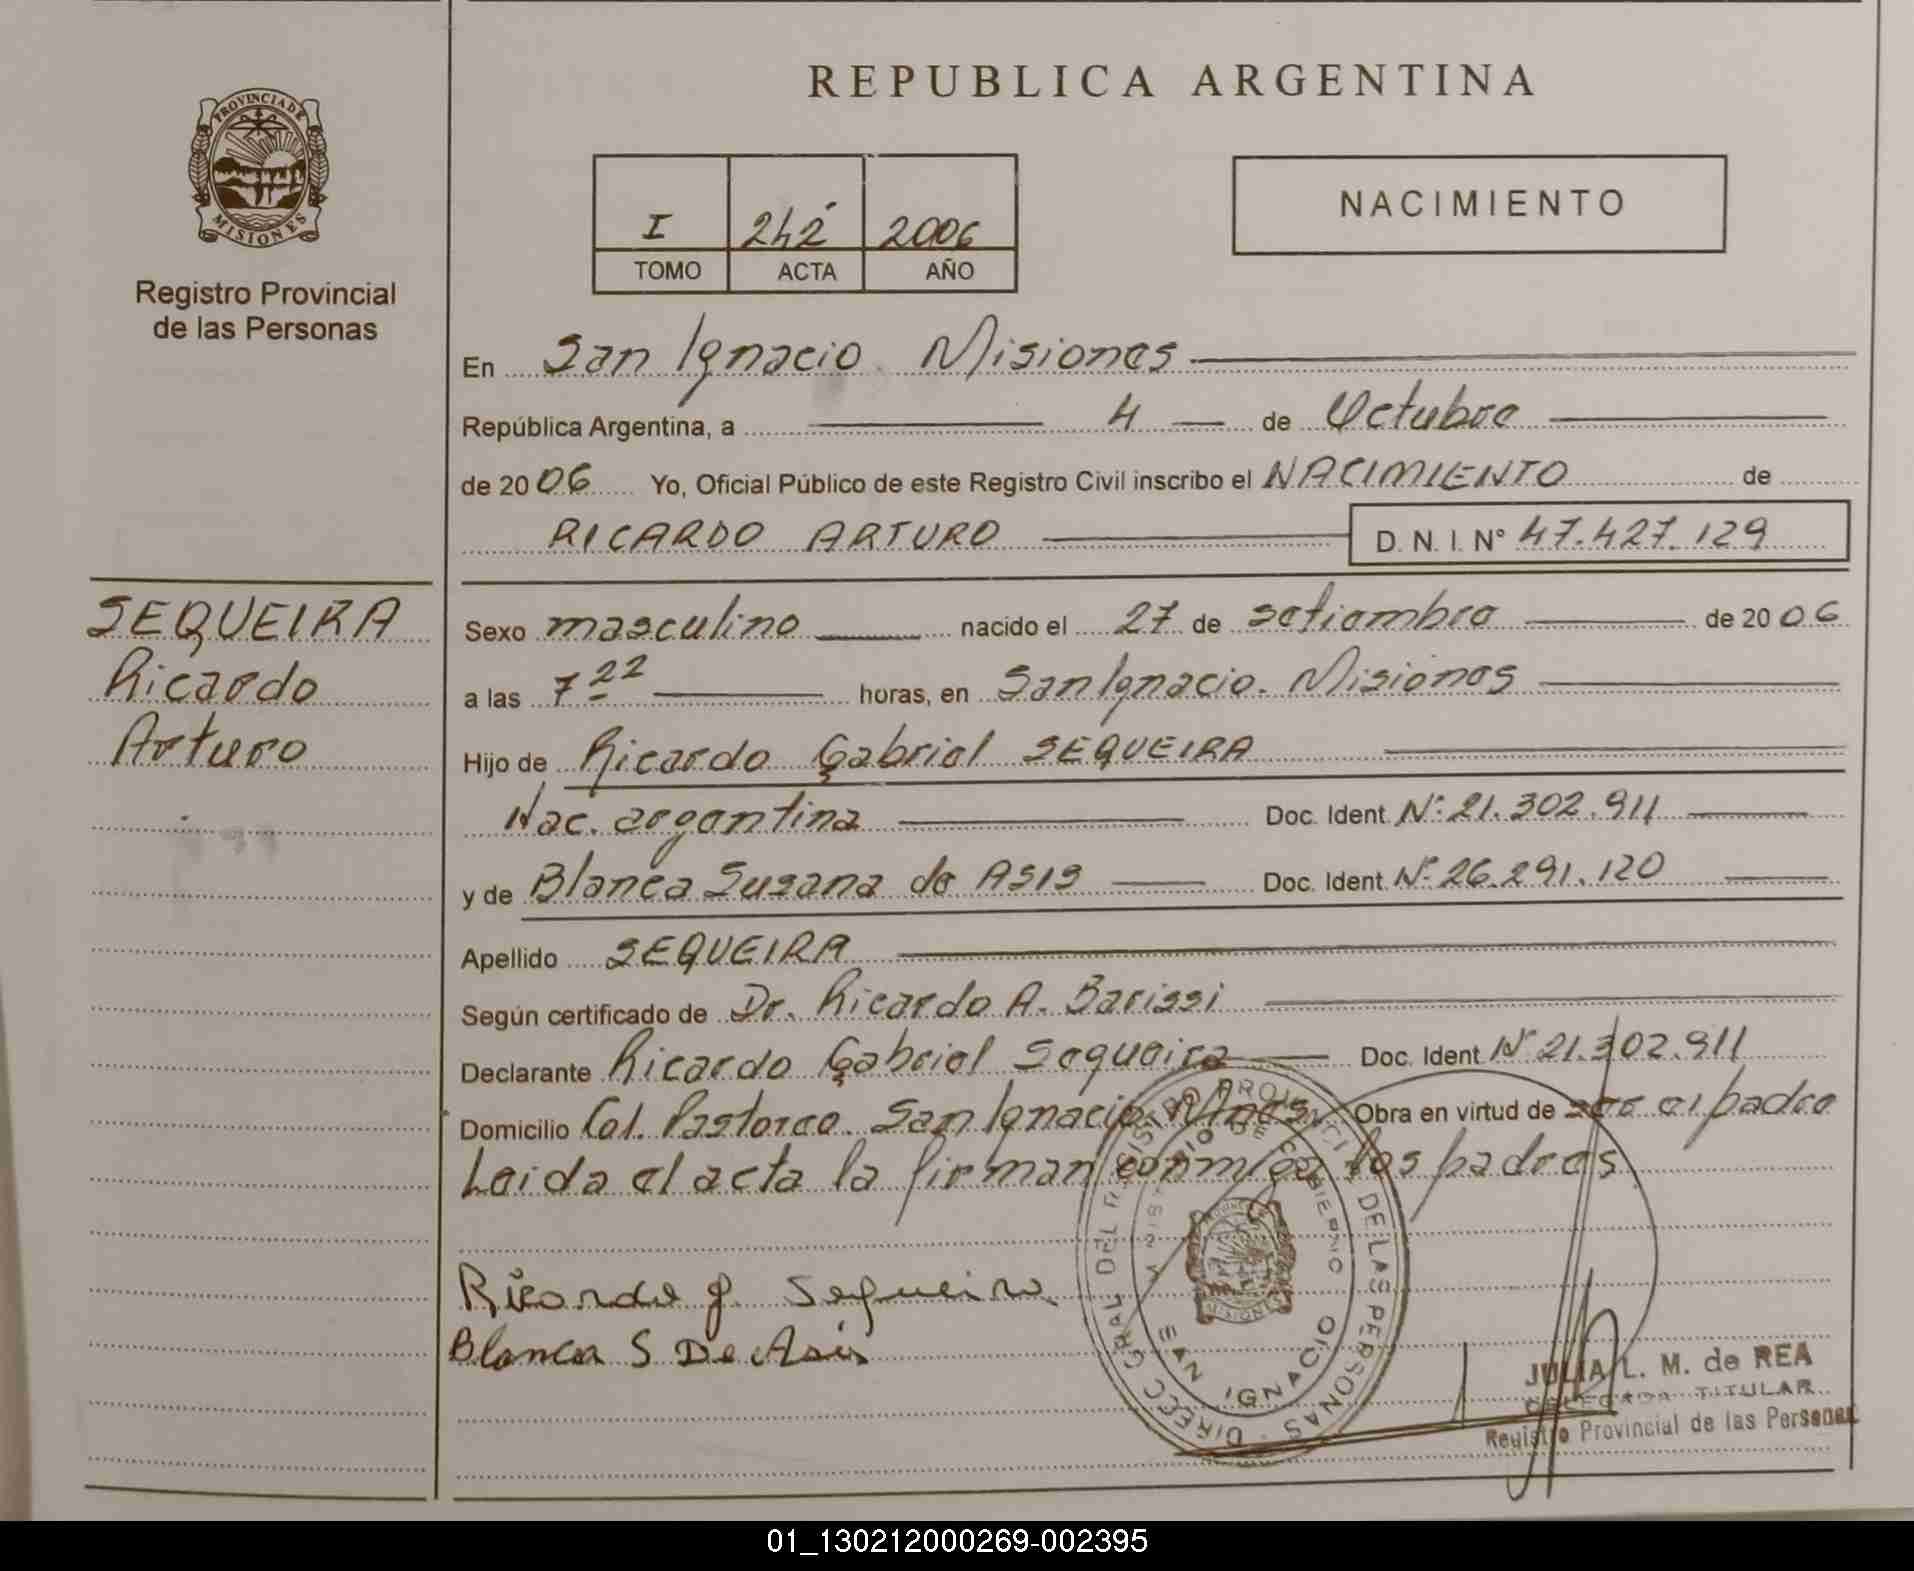 REPUBLICA ARGENTINA
PROVINCIA DE
MISIONES
Registro Provincial
de las Personas
I 242 2006
TOMO ACTA AÑO
NACIMIENTO
En San Ignacio. Misiones
República Argentina, a 4 de Octubre
de 2006 Yo, Oficial Público de este Registro Civil inscribo el NACIMIENTO de
RICARDO ARTURO D. N. I. N° 47.427.129
SEQUEIRA
Ricardo
Arturo
Sexo masculino nacido el 27 de setiembre de 2006
a las 7 22 horas, en San Ignacio. Misiones
Hijo de Ricardo Gabriel SEQUEIRA
Nac. argentina Doc. Ident. N° 21.302.911
y de Blanca Susana de ASIS Doc. Ident. N° 26.291.120
Apellido SEQUEIRA
Según certificado de Dr. Ricardo A. Barissi
Declarante Ricardo Gabriel Sequeira Doc. Ident N° 21.302.911
Domicilio Col. Pastoreo. San Ignacio. Mnes. Obra en virtud de ser el padre
Leida el acta la firman conmigo los padres
Ricardo G. Sequeira
Blanca S De Asis
DIRECC GRAL DEL REGISTRO PROVINCIAL DE LAS PERSONAS
SAN IGNACIO
MISIONES
JULIA L. M. de REA
DELEGADA TITULAR
Registro Provincial de las Personas
01_130212000269-002395